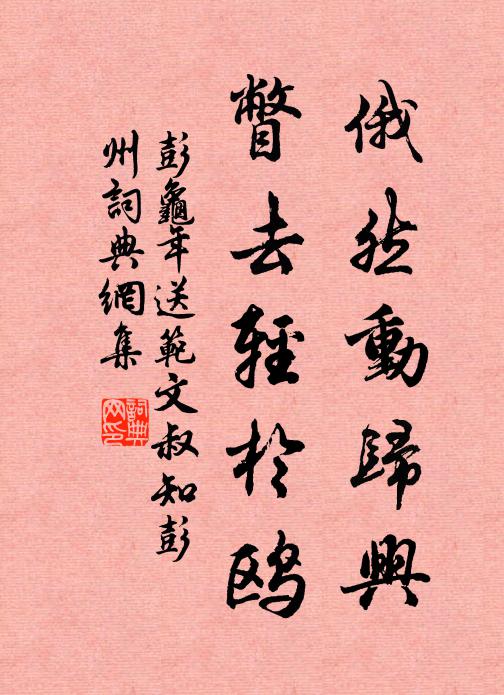 俄然動歸興
瞥去輕於鷗
彭龜年送範文叔知彭
州詞典網集
詞典
网印